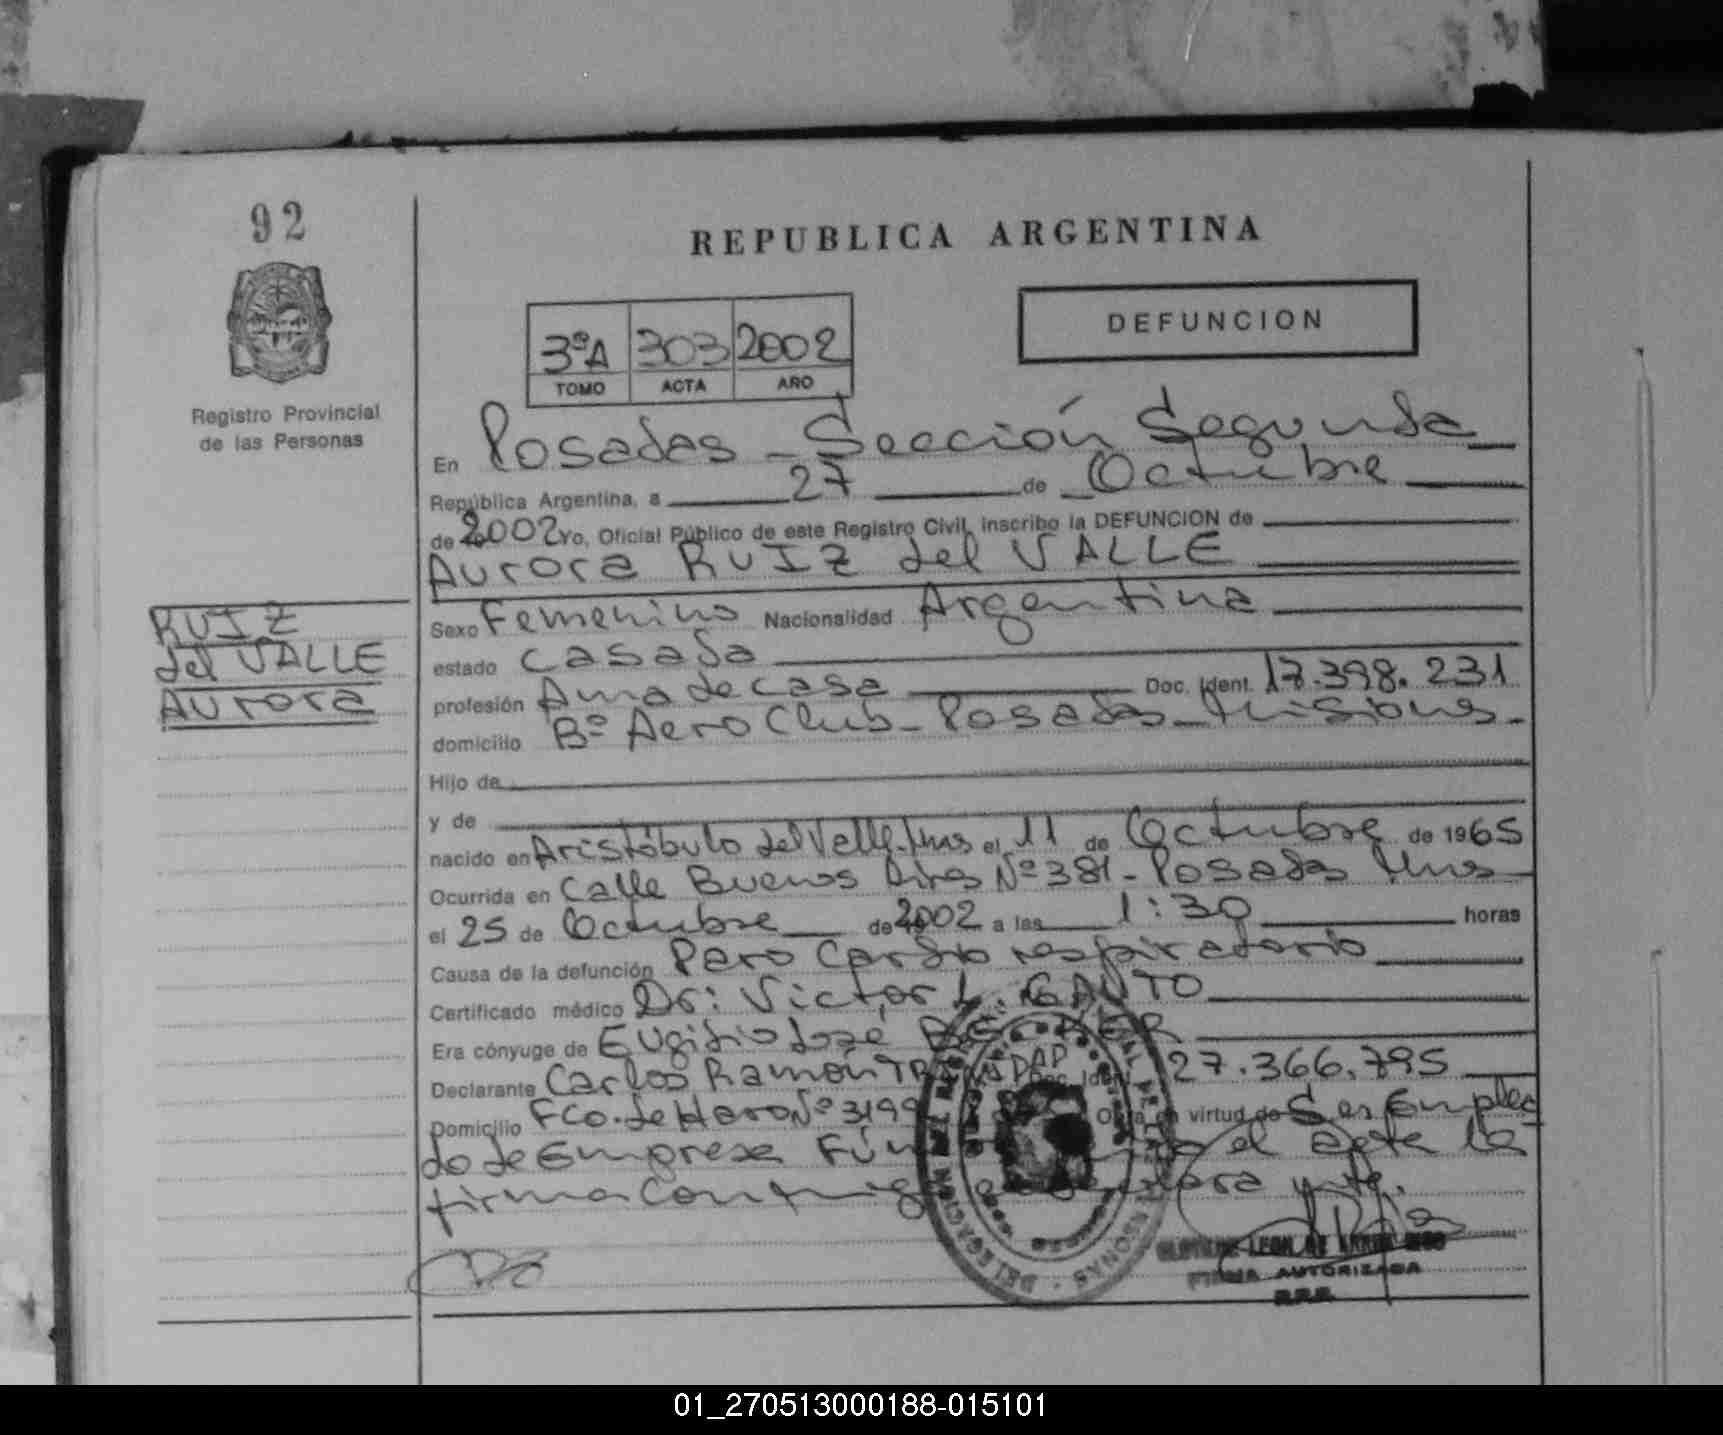 92
REPUBLICA ARGENTINA
DEFUNCION
3ºA 303 2002
TOMO ACTA AÑO
Registro Provincial
de las Personas
En Posadas - Sección Segunda
República Argentina, a 27 de Octubre
de 2002 Yo, Oficial Público de este Registro Civil, inscribo la DEFUNCION de
Aurora RUIZ del VALLE
RUIZ
del VALLE
Aurora
Sexo Femenino Nacionalidad Argentina
estado casada
profesión Ama de casa Doc. Ident. 17.398.231
domicilio Bº Aero Club - Posadas - Misiones -
Hijo de
y de
nacido en Aristóbulo del Valle. Mns el 11 de Octubre de 1965
Ocurrida en Calle Buenos Aires Nº 381 - Posadas Mns
el 25 de Octubre de 2002 a las 1:30 horas
Causa de la defunción Paro Cardio respiratorio
Certificado médico Dr: Victor L. GAUTO
Era cónyuge de Eugidio José
Declarante Carlos Ramón Doc. Ident. 27.366.795
Domicilio Fco. de Haro Nº 3199 Obra en virtud de Ser Emplea
do de Empresa Fún el acta la
firma conmig
FIRMA AUTORIZADA
01_270513000188-015101